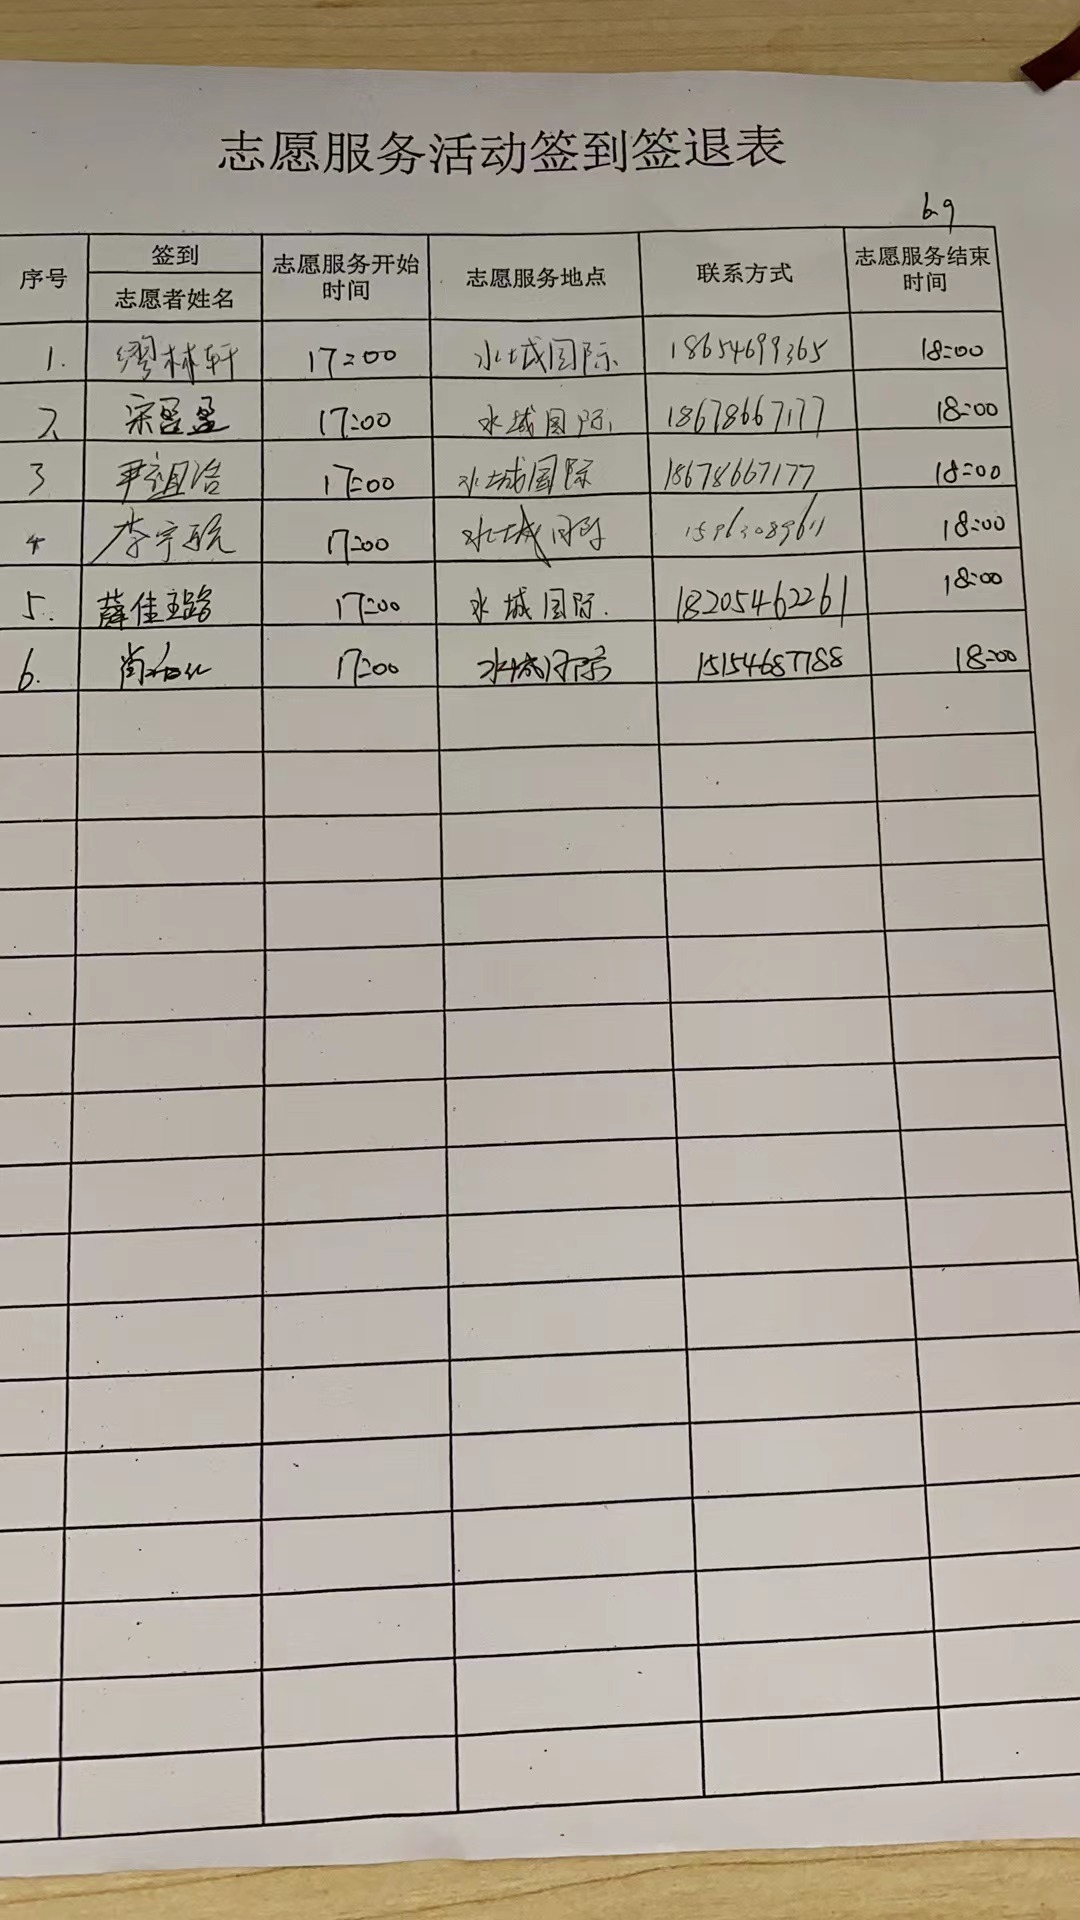 志愿服务活动签到签退表
6.9
序号 签到 志愿者姓名 志愿服务开始时间 志愿服务地点 联系方式 志愿服务结束时间
1. 缪林轩 17:00 水城国际 18654699365 18:00
2 宋盈盈 17:00 水城国际 18678667177 18:00
3 尹祖浩 17:00 水城国际 18678667177 18:00
4 李宇 17:00 水城国际 15963089611 18:00
5. 薛佳璐 17:00 水城国际. 18205462261 18:00
6. 17:00 水城国际 15154687788 18:00